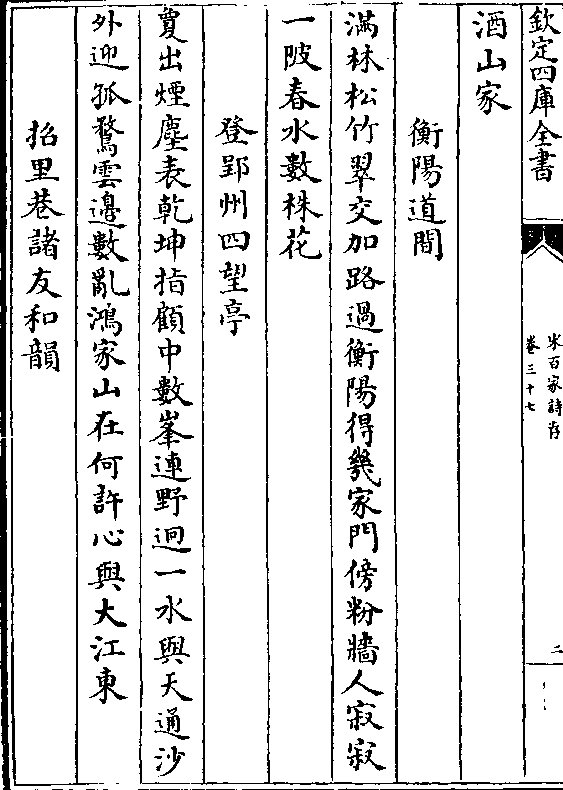 欽定四庫全書
宋百家詩存
卷三十七
二
酒山家
衡陽道間
滿林松竹翠交加路過衡陽得幾家門傍粉牆人寂寂
一陂春水數株花
登郢州四望亭
敻出煙塵表乾坤指顧中數峯連野迥一水與天通沙
外迎孤鶩雲邊數亂鴻家山在何許心與大江東
招里巷諸友和韻